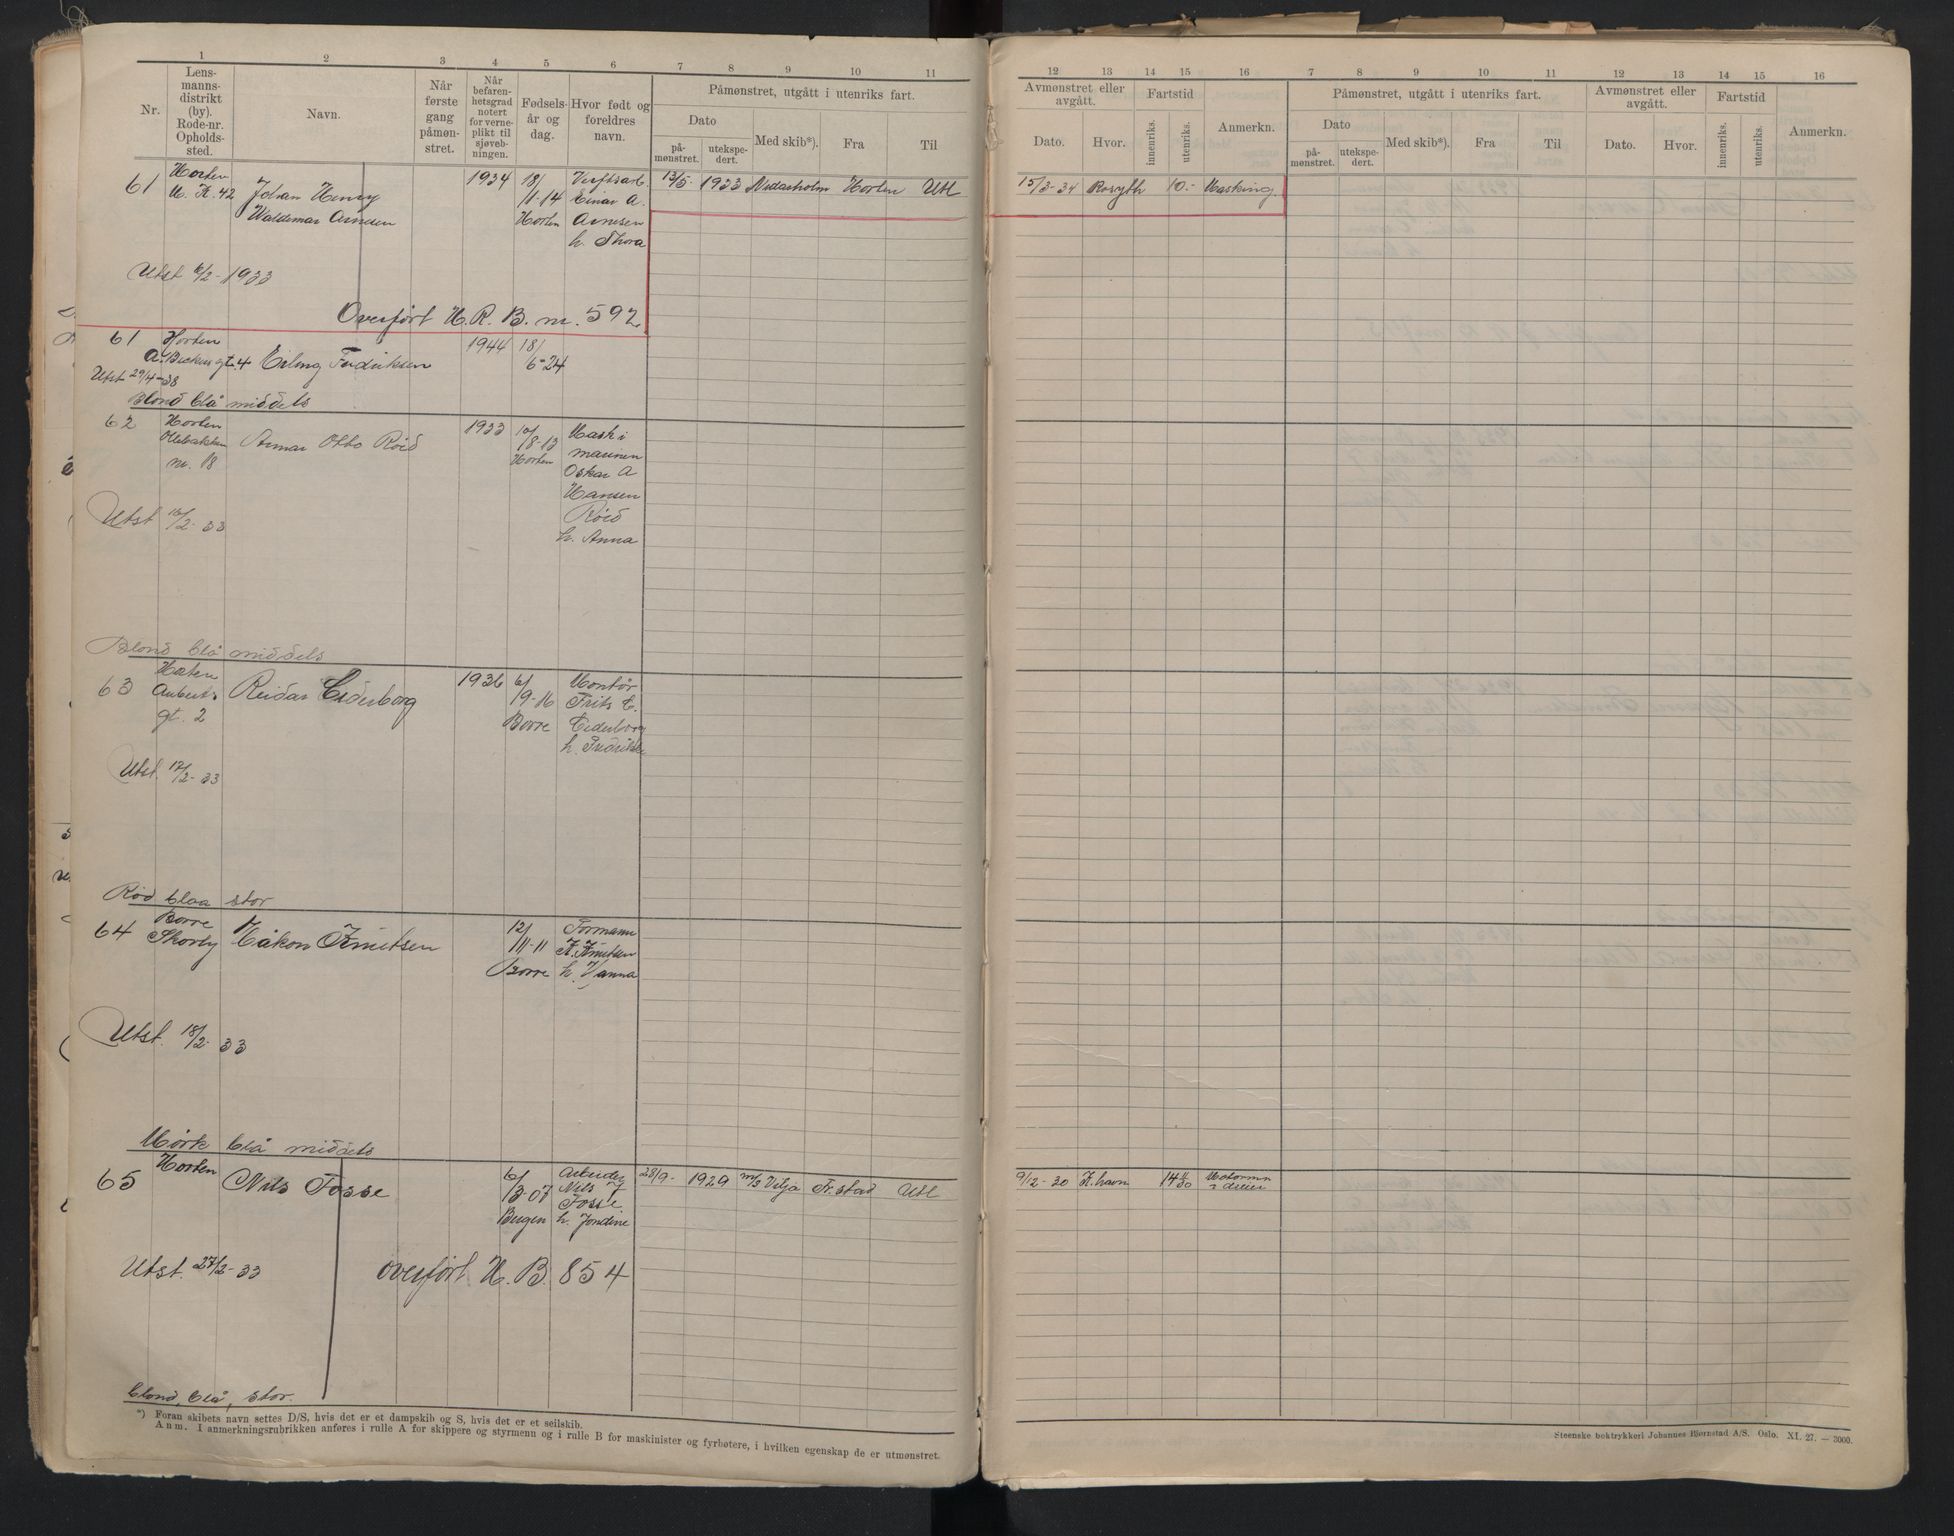 1 2 3 4 5 6 7 8 9 10 11
Nr.
Lens-
manns-
distrikt
(by).
Rode-nr.
Opholds-
sted.
Navn.
Når
første
gang
påmøn-
stret.
Når
befaren-
hetsgrad
notert
for verne-
plikt til
sjøveb-
ningen.
Fødsels-
år og
dag.
Hvor født og
foreldres
navn.
Påmønstret, utgått i utenriks fart.
Dato
på-
mønstret.
utekspe-
dert.
Med skib*).
Fra
Til
61 Horten Johan Henry 1934 18/ Verftsarb. 13/5- 1933 Nidarholm Horten Utl
K. 42 Waldemar Arnesen 11-14 Einar A.
Horten Arnesen
h. Thora
Utst 6/2-1933
Overført H. R. B. nr. 592
61 Horten 1944 18/
gt. 4 Erling Fredriksen 6-24
Utst 29/4-38
Blond blå middels
62 Horten Arnar Otto Röid 1933 10/ Maski
8-13 mannen
nr. 18 Horten Oskar A
Hansen
Röid
h. Anna
Utst 16/2-33
Blond blå middels
63 Horten Reidar Cederborg 1936 6/ Montör
Auberts 9-16 Frits C.
gt. 2 Borre Cederborg
h. Fredrikke
Utst. 17/2-33
Rød blaa stor
64 Borre Håkon Knutsen 12/ Formann
Skorby 11-11 K. Knutsen
Borre h. Hanna
Utst. 18/2-33
Mørk blå middels
65 Horten Nils Fosse 6/ Arbeider 28/9- 1929 m/s Vilja Fr.stad Utl
3-07 Nils J
Fosse
Bergen h. Jondine
Utst. 27/2-33 overført H. B. 854
blond, blå, stor.
*) Foran skibets navn settes D/S, hvis det er et dampskib og S, hvis det er et seilskib.
Anm. I anmerkningsrubrikken anføres i rulle A for skippere og styrmenn og i rulle B for maskinister og fyrbøtere, i hvilken egenskap de er utmønstret.
12 13 14 15 16 7 8 9 10 11 12 13 14 15 16
Avmønstret eller
avgått.
Dato.
Hvor.
Fartstid
innenriks.
utenriks.
Anmerkn.
Påmønstret, utgått i utenriks fart.
Dato
på-
mønstret.
utekspe-
dert.
Med skib*).
Fra
Til
Avmønstret eller
avgått.
Dato.
Hvor.
Fartstid
innenriks.
utenriks.
Anmerkn.
15/3-34 Rosyth 10.- Masking.
9/12-30 K.havn 14 11/30 Motormn
Steenske boktrykkeri Johannes Bjørnstad A/S. Oslo. XI. 27. — 3000.